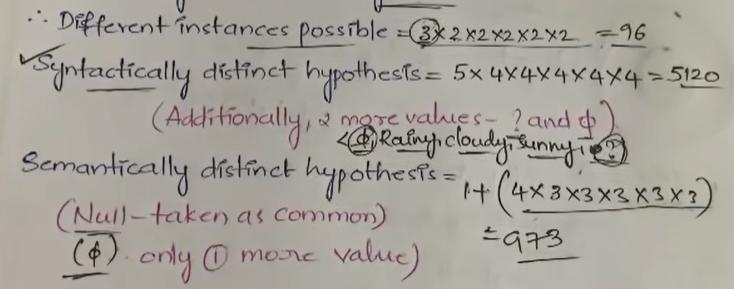 ∴ Different instances possible = 3×2×2×2×2×2 = 96
✓Syntactically distinct hypothesis = 5×4×4×4×4×4 = 5120
(Additionally, 2 more values - ? and ϕ)
<ϕ, Rainy, cloudy, sunny, ?>
Semantically distinct hypothesis = 1+(4×3×3×3×3×3)
(Null-taken as common)
= 973
(ϕ). only ① more value)